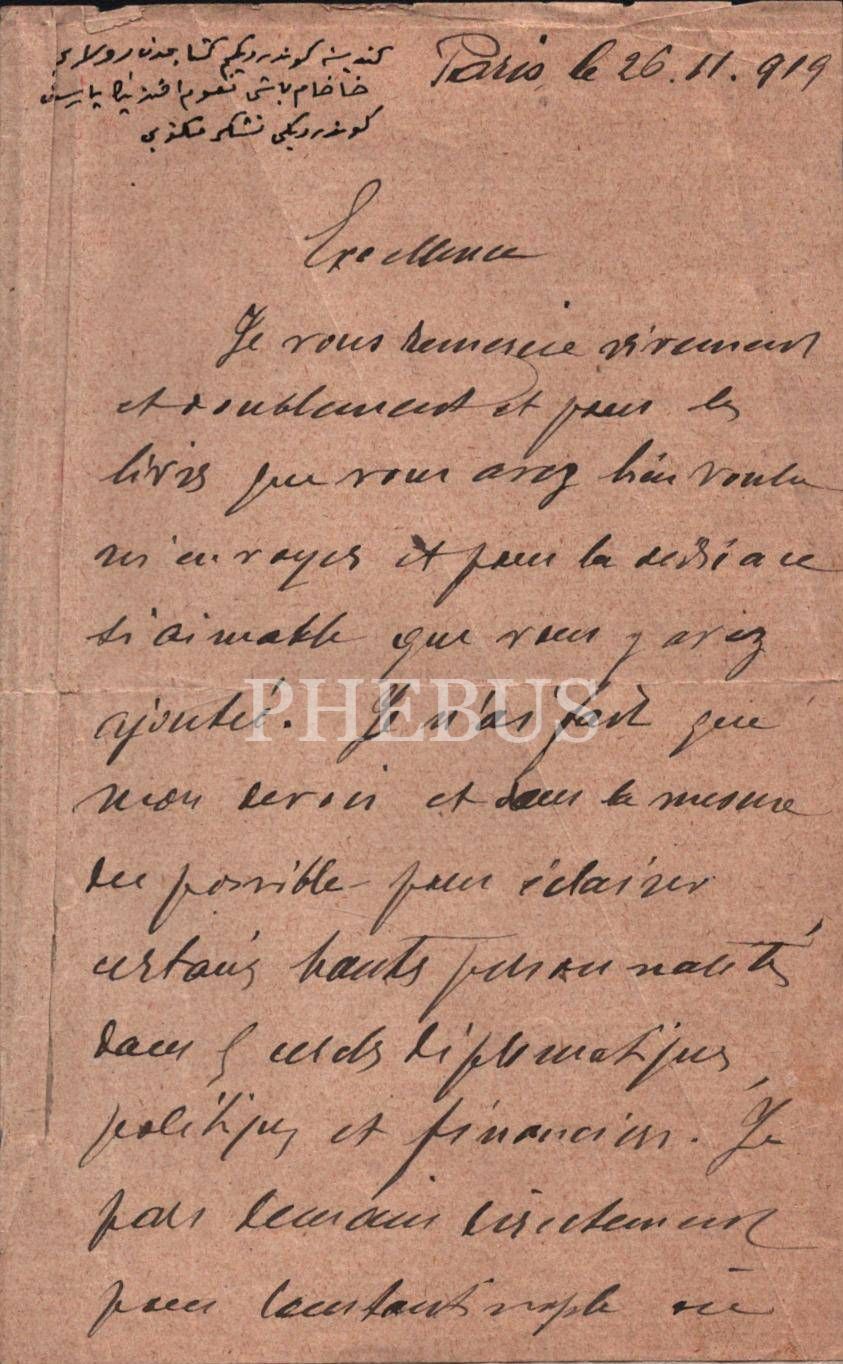 كندیسنه كوندردیكم كتابمدن دولایی
خاخام باشی نعوم افندینك پارسدن
كوندردیكی تشكر مكتوبی
Paris, le 26.11.919
Excellence
Je vous remercie vivement
et doublement et pour les
livres que vous avez bien voulu
m'envoyer et pour la dédicace
si aimable que vous y avez
ajouté. Je n'ai fait que
mon devoir et dans la mesure
du possible pour éclairer
certains hauts personnalités
dans les cercles diplomatiques,
politiques et financiers. Je
pars demain directement
pour Constantinople où
PHEBUS